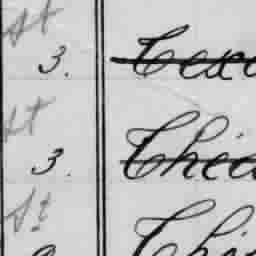 St
3. Texa
St
3. Chica
St
Chi